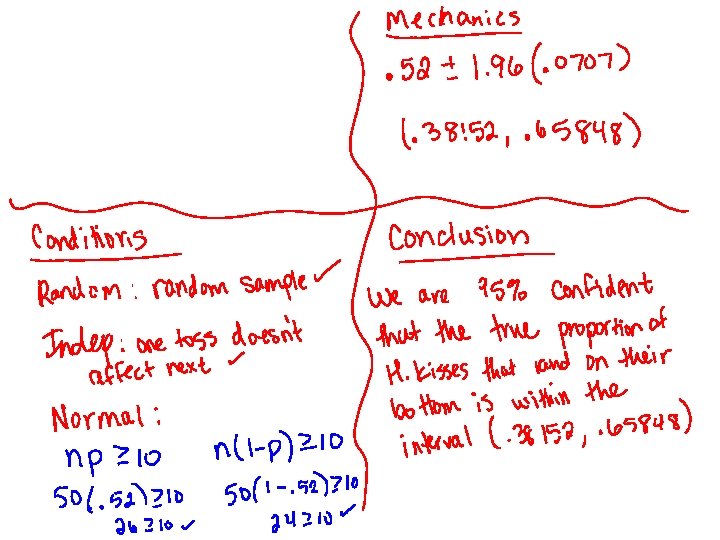 Mechanics
.52 ± 1.96 (.0707)
(.38152, .65848)
Conditions
Random: random sample ✓
Indep: one toss doesn't
affect next ✓
Normal:
np ≥ 10
n(1-p) ≥ 10
50(.52) ≥ 10
50(1-.52) ≥ 10
26 ≥ 10 ✓
24 ≥ 10 ✓
Conclusion
We are 95% confident
that the true proportion of
H. kisses that land on their
bottom is within the
interval (.38152, .65848)